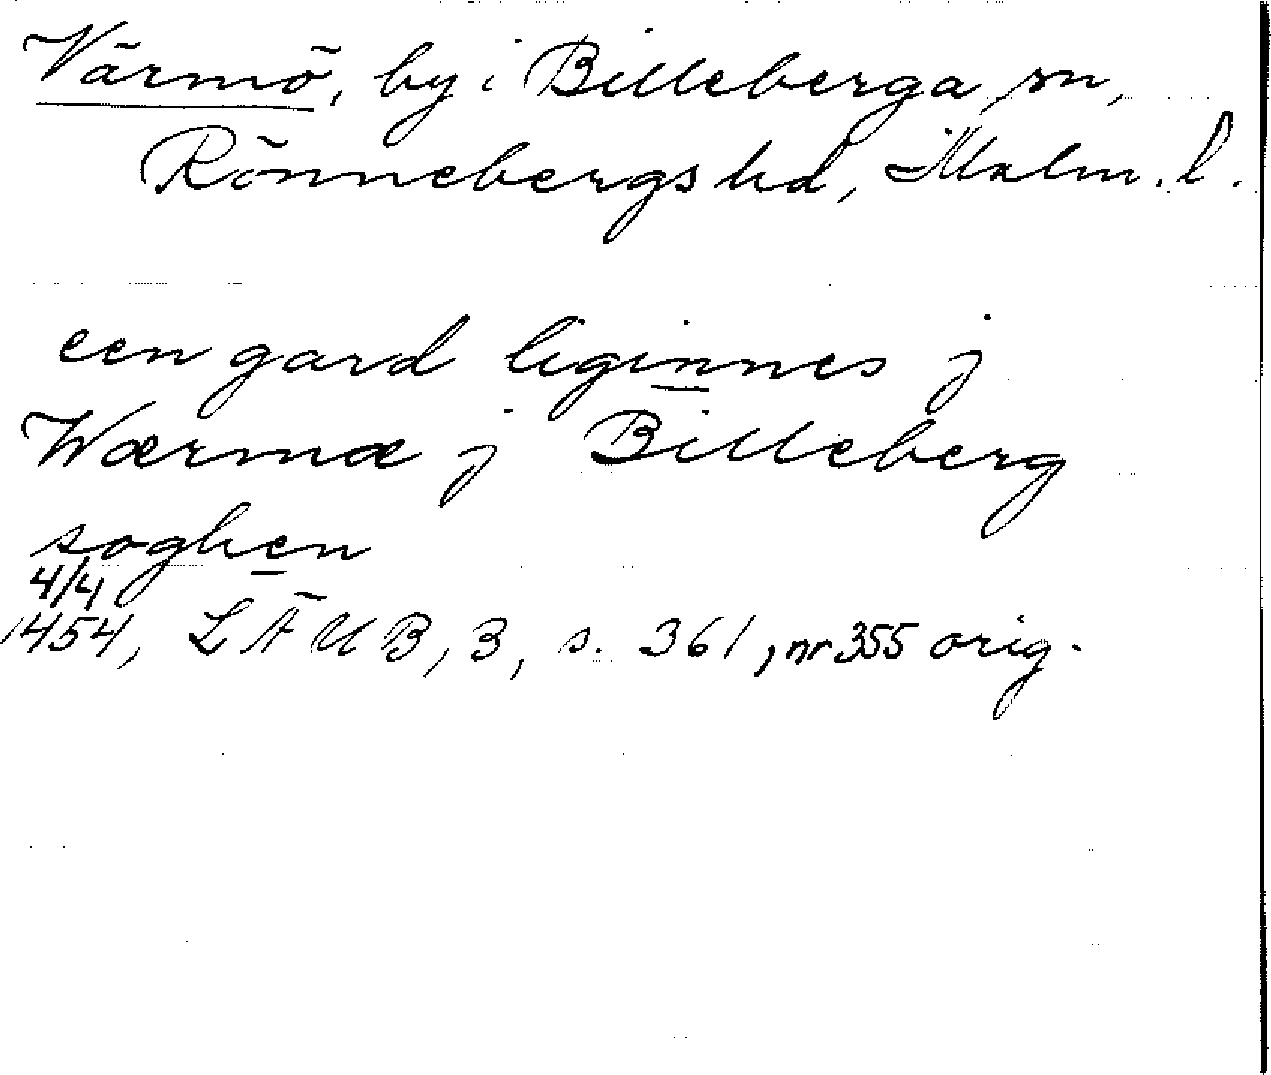 Värmö, by i Billeberga sn,
Rönnebergs hd, Malm. l.
een gard liginnes j
Wærmæ j Billeberg
soghen
4/4
1454, LÄUB, 3, s. 361, nr 355 orig.